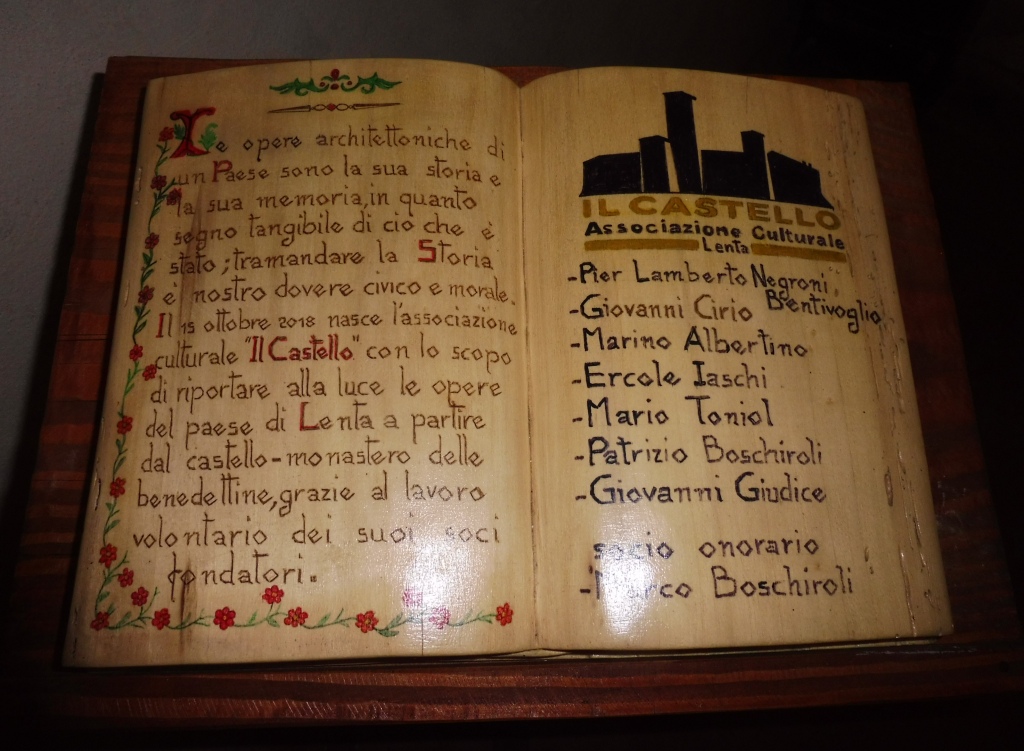 Le opere architettoniche di
un Paese sono la sua storia e
la sua memoria, in quanto
segno tangibile di cio che è
stato; tramandare la Storia
e' nostro dovere civico e morale.
Il 15 ottobre 2018 nasce l'associazione
culturale "Il Castello" con lo scopo
di riportare alla luce le opere
del paese di Lenta a partire
dal castello-monastero delle
benedettine, grazie al lavoro
volontario dei suoi soci
fondatori.
IL CASTELLO
Associazione Culturale
Lenta
-Pier Lamberto Negroni
Bentivoglio
-Giovanni Cirio
-Marino Albertino
-Ercole Iaschi
-Mario Toniol
-Patrizio Boschiroli
-Giovanni Giudice
socio onorario
-Marco Boschiroli